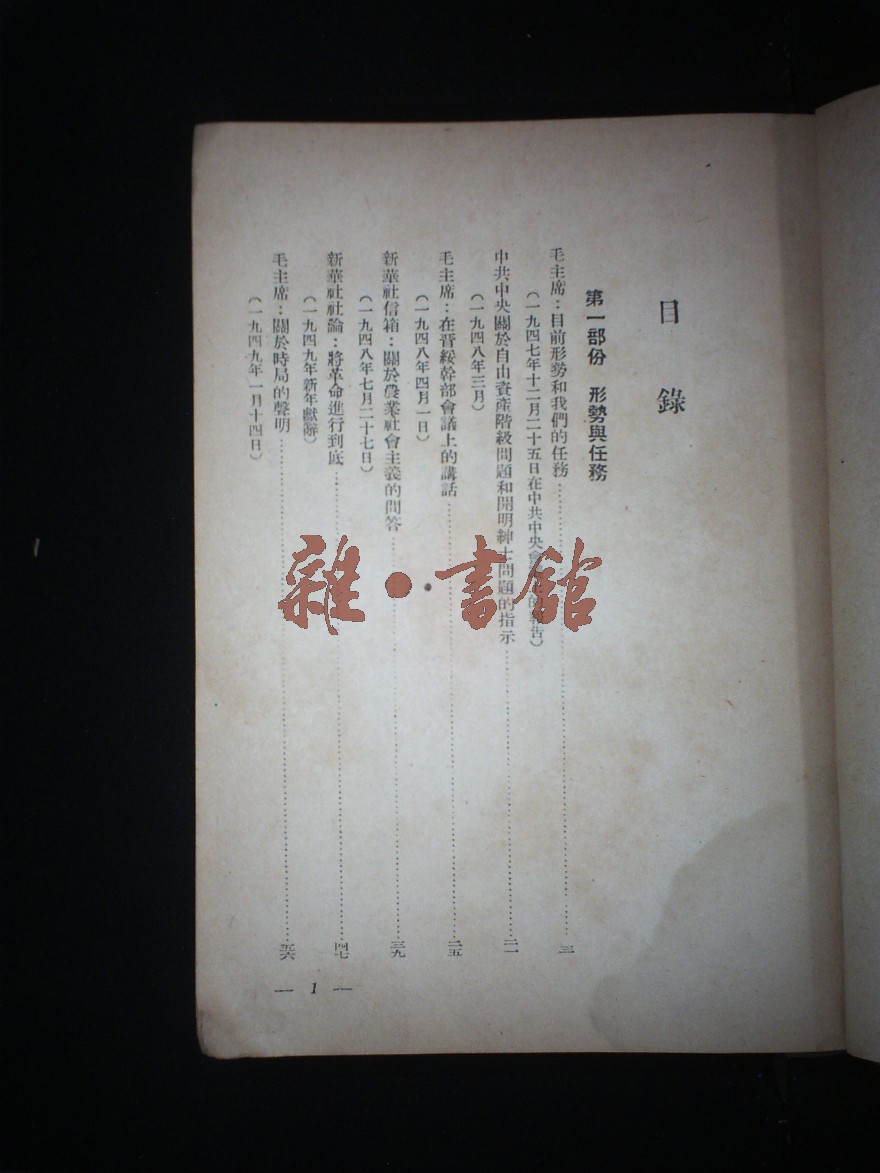 目錄
第一部份 形勢與任務
毛主席：目前形勢和我們的任務……三
（一九四七年十二月二十五日在中共中央會　　的報告）
中共中央關於自由資產階級問題和開明紳士問題的指示……二一
（一九四八年三月）
毛主席：在晉綏幹部會議上的講話……二五
（一九四八年四月一日）
新華社信箱：關於農業社會主義的問答……三九
（一九四八年七月二十七日）
新華社社論：將革命進行到底……四七
（一九四九年新年獻辭）
毛主席：關於時局的聲明……五六
（一九四九年一月十四日）
— 1 —
雜·書館